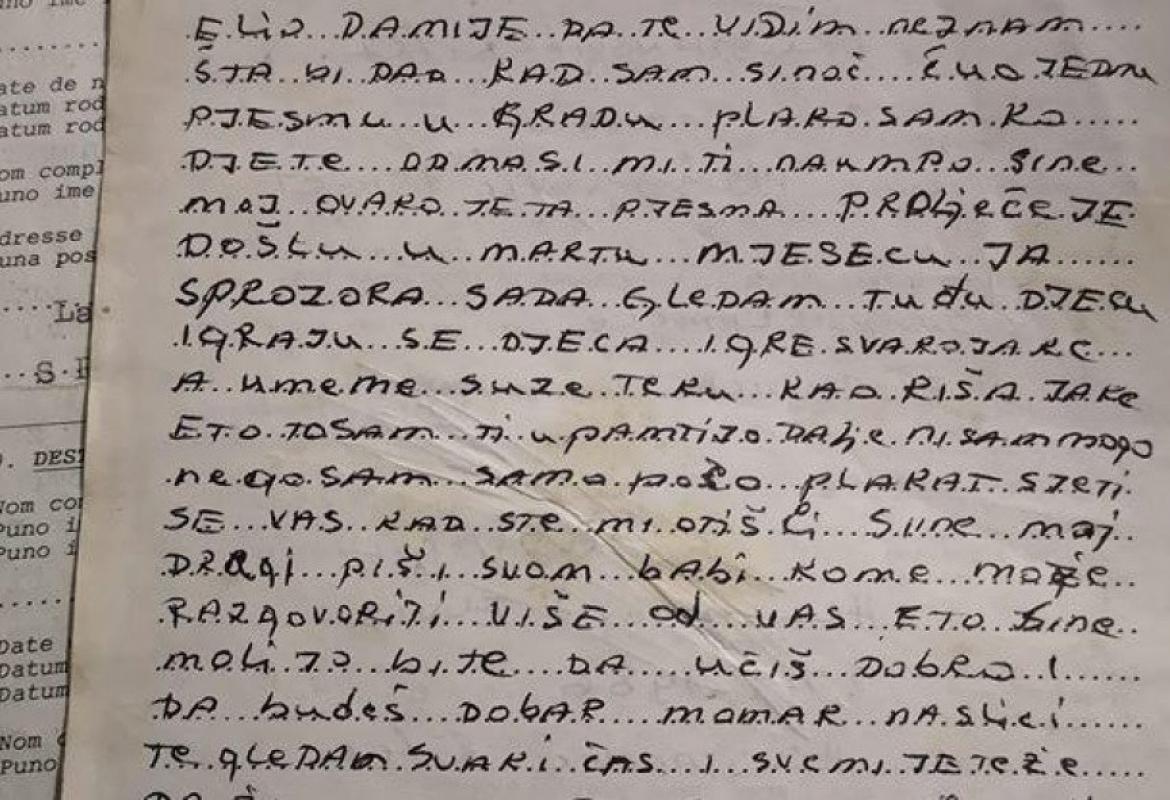 uno ime
ate de n
atum rod
atum rod
om compl
uno ime
dresse
una pos
La
S.
DEST
Nom com
Puno i
Puno i
Date
Datum
Datum
Nom
Puno
ELIO DA MIJE DA TE VIDIM NEZNAM
ŠTA BI DAO KAD SAM SINOĆ ČUO JEDNU
PJESMU U GRADU PLAKO SAM KO
DJETE ODMA SI MI TI NAUMPO SINE
MOJ OVAKO JE TA PJESMA PROLJEČE JE
DOŠLU U MARTU MJESECU JA
SPROZORA SADA GLEDAM TUĐU DJECU
IGRAJU SE DJECA IGRE SVAKOJAKE
A UMENE SUZE TEKU KAO KIŠA JAKE
ETO TOSAM TI UPAMTIJO DALJE NISAM MOGO
NEGO SAM SAMO POČO PLAKAT SJETI
SE VAS KAD STE MI OTIŠLI SINE MOJ
DRAGI PIŠI SVOM BABI KOME MOŽE
RAZGOVORITI VIŠE OD VAS ETO SINE
MOLIJO BI TE DA UČIŠ DOBRO I
DA BUDEŠ DOBAR MOMAK NA SLICI
TE GLEDAM SVAKI ČAS I SVE MI JE TEŽE